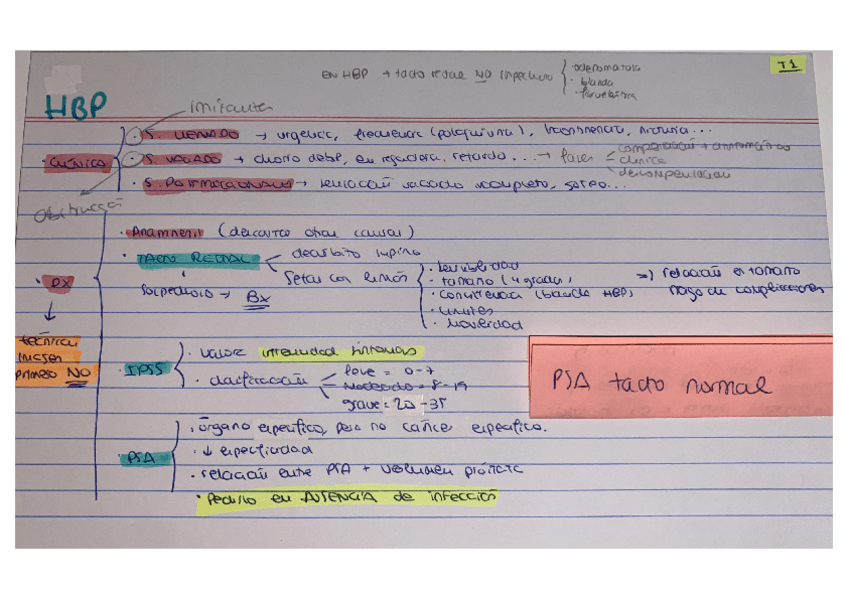 EN HBP → tacto rectal NO sospechoso
· adenomatosa
· blanda
T1
HBP
irritantes
· Clínica
· S. LLENADO → urgencia, frecuencia (polaquiuria), incontinencia, nicturia...
· S. VACIADO → chorro débil, en regadera, retardo... → fases
compensación + asintomático
clínica
descompensación
· S. Postmiccionales → sensación vaciado incompleto, goteo...
Obstrucción
· DX
· Anamnesis (descartar otras causas)
· TACTO RECTAL
decúbito supino
Setas con limón
sospechoso → Bx
· sensibilidad
· tamaño (4 grados)
· consistencia (blanda HBP)
· límites
· movilidad
=) relación en tamaño
riesgo de complicaciones
técnica
imagen
primero NO
· IPSS
· valora intensidad síntomas
· clasificación
leve = 0-7
Moderado = 8-19
grave = 20-35
PSA tacto normal
· PSA
· órgano específico, pero no cáncer específico.
· ↓ especificidad
· relación entre PSA + volumen próstata
· Pedirlo en AUSENCIA de infección